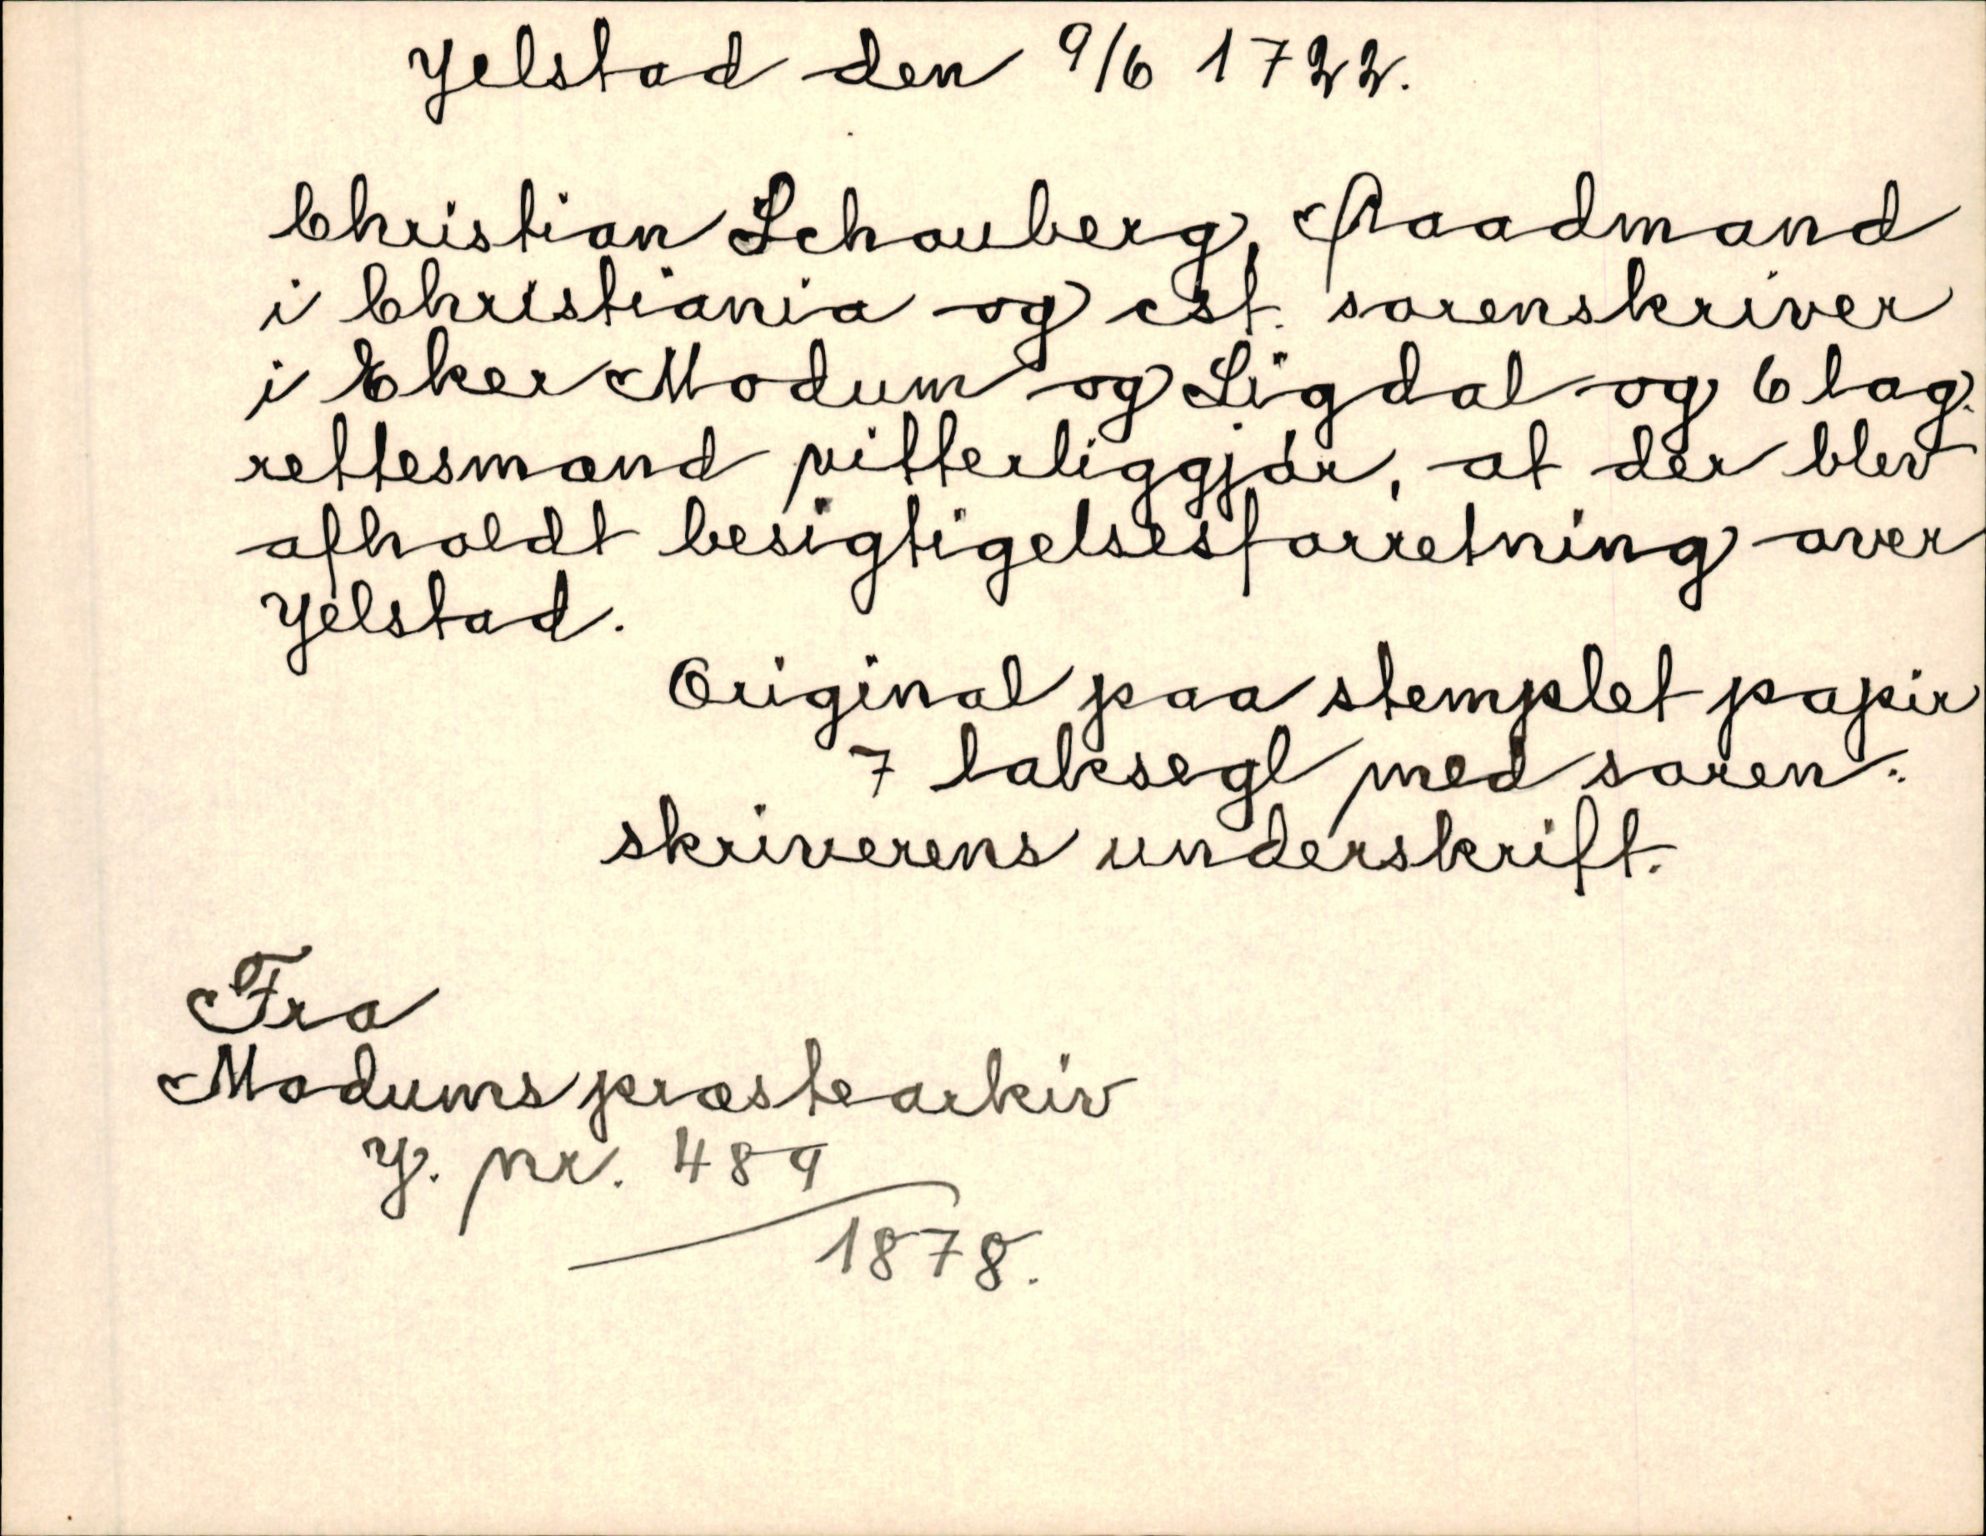 Yelstad den 9/6 1722.
Christian Schouberg, Raadmand
i Christiania og cst. sorenskriver
i Eker Modum og Sigdal og 6 lag.
rettesmænd vitterliggjør, at der blev
afholdt besigtigelsesforretning over
Yelstad.
Original paa stemplet papir
7 laksegl med soren-
skriverens underskrift.
Fra
Modums præstearkiv
J. nr. 489
1878.